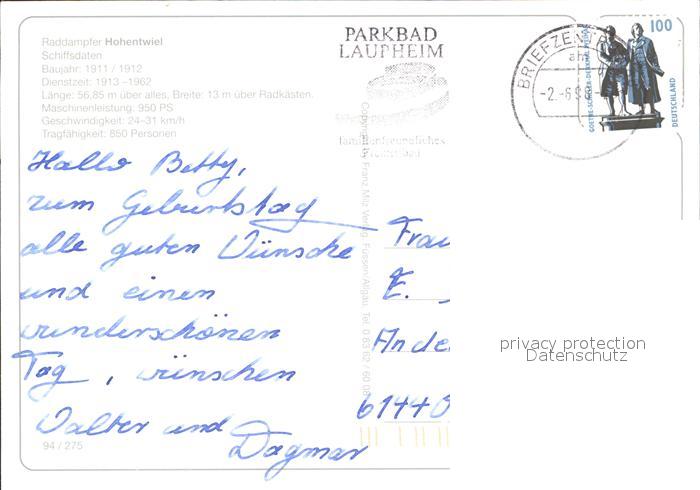 Raddampfer Hohentwiel
Schiffsdaten
Baujahr: 1911 / 1912
Dienstzeit: 1913 –1962
Länge: 56,85 m über alles, Breite: 13 m über Radkästen.
Maschinenleistung: 950 PS
Geschwindigkeit: 24–31 km/h
Tragfähigkeit: 850 Personen
PARKBAD
LAUPHEIM
familienfreundliches
BRIEFZENT
-2.-6.9
100
GOETHE-SCHILLER-DENKMAL
DEUTSCHLAND
Hallo Betty,
zum Geburtstag
alle guten Wünsche
und einen
wunderschönen
Tag, wünschen
Walter und
Dagmar
94 / 275
Copyright by Franz Milz Verlag Füssen/Allgäu Tel. 0 83 62 / 60 08
Frau
E.
An de
61440
privacy protection
Datenschutz